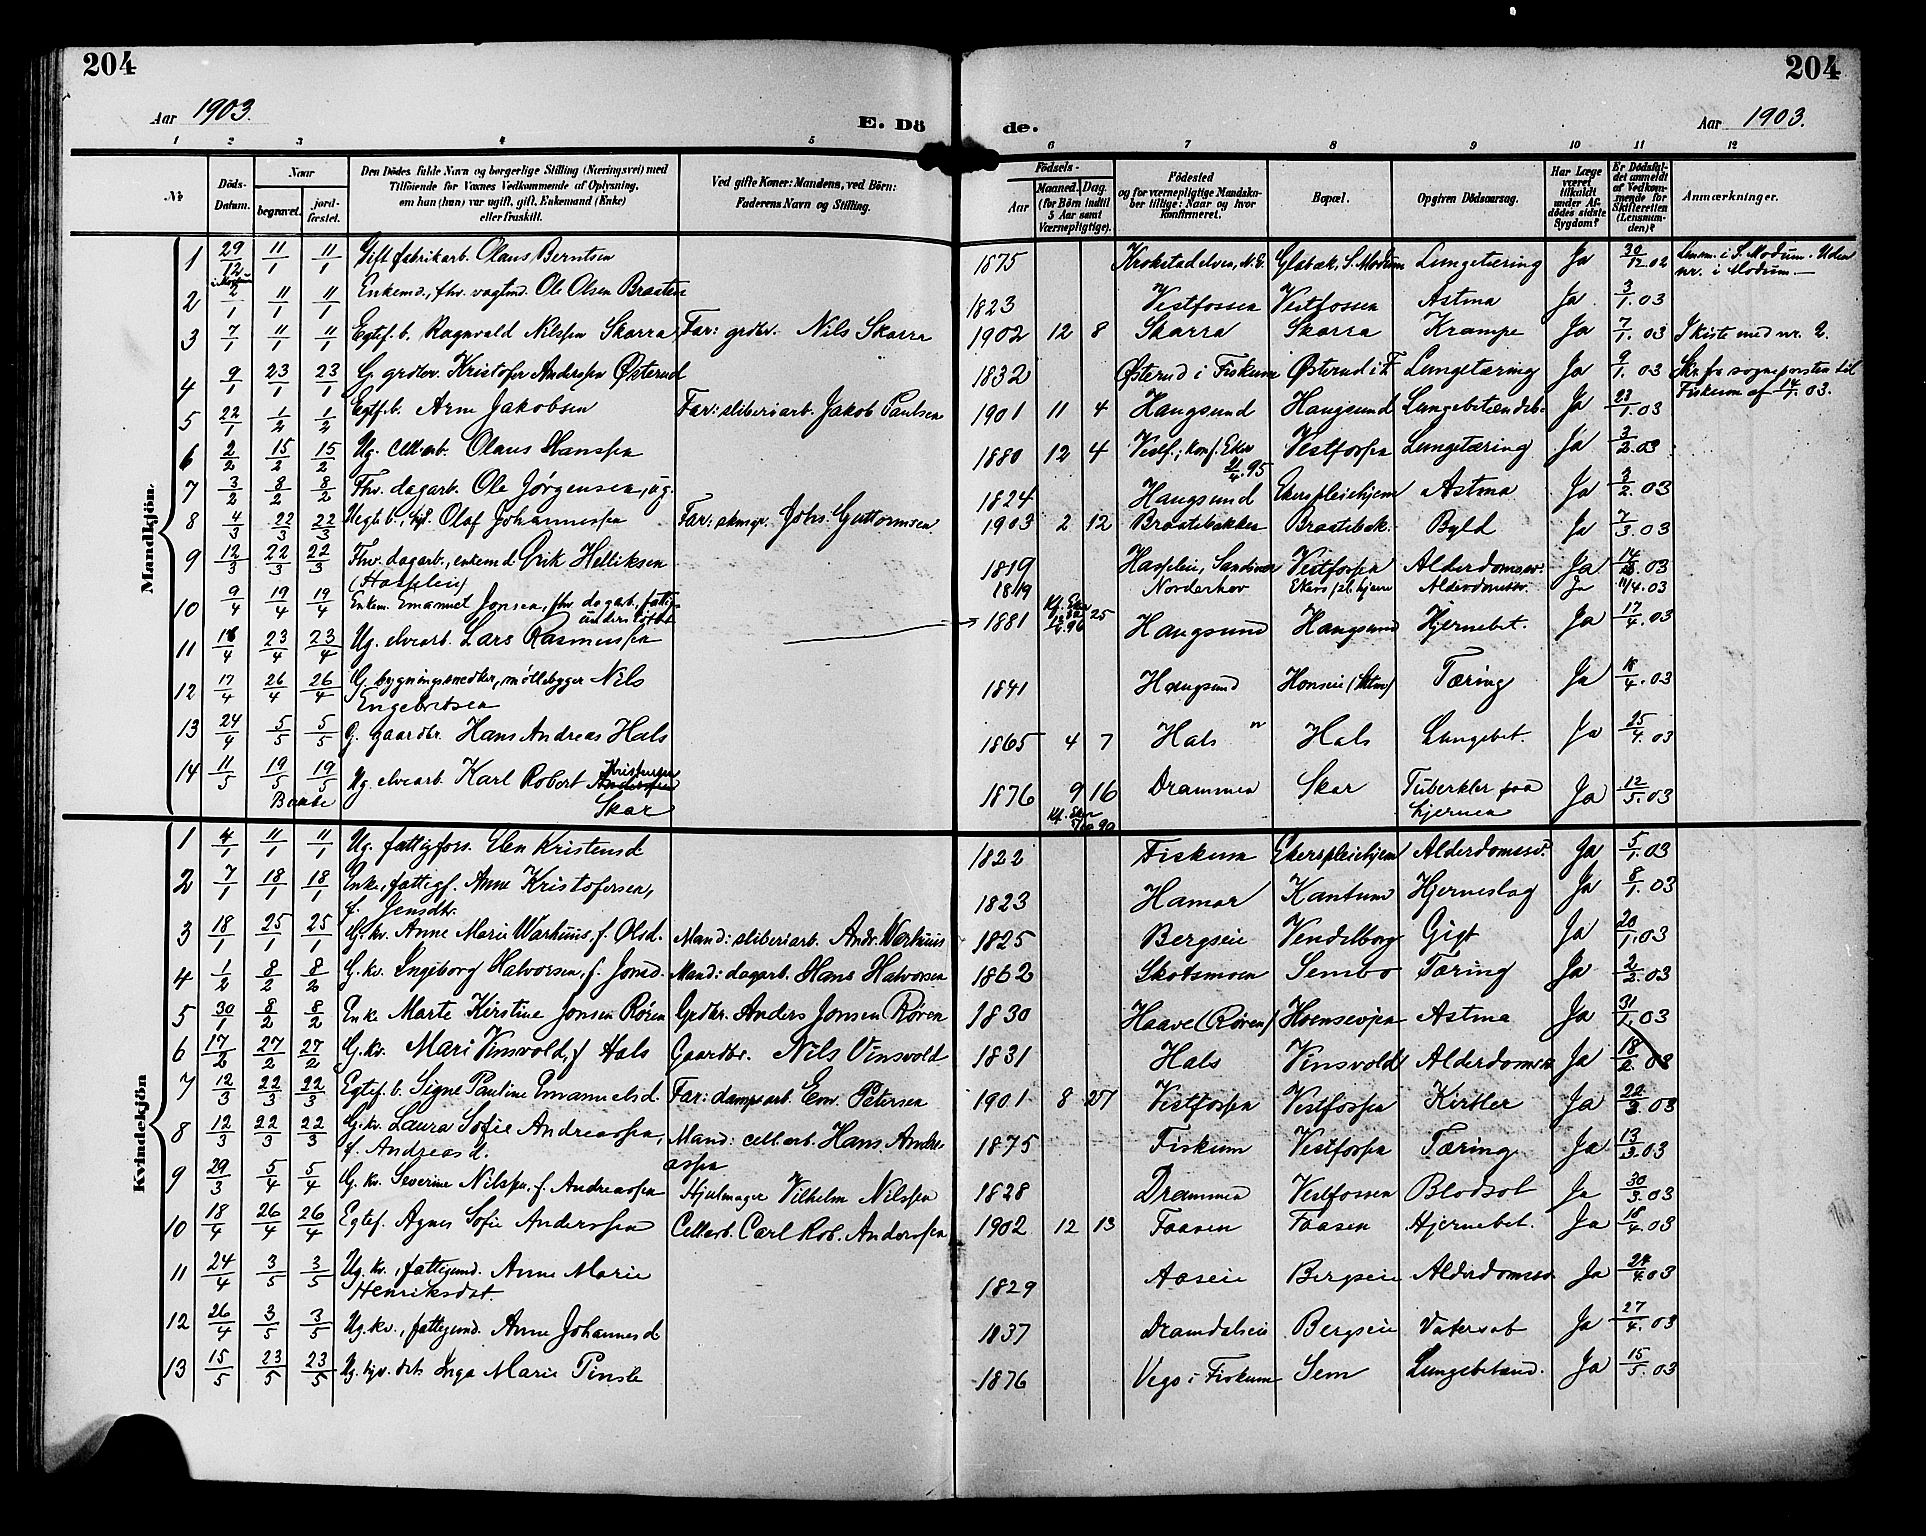 204
204
Aar 1903.
E. Dö de.
Aar 1903.
1 2 3 4 5 6 7 8 9 10 11 12
No
Döds-Datum.
Naar
begravet.
jord-fæstet.
Den Dödes fulde Navn og borgerlige Stilling (Næringsvei) med
Tilföiende for Voxnes Vedkommende af Oplysning,
om han (hun) var ugift, gift, Enkemand (Enke)
eller fraskilt.
Ved gifte Koner: Mandens, ved Börn:
Faderens Navn og Stilling.
Födsels-
Aar
Maaned. Dag.
(for Börn indtil
5 Aar samt
Værnepligtige).
Födested
og for værnepligtige Mandska-
ber tillige: Naar og hvor
Konfirmeret.
Bopæl.
Opgiven Dödsaarsag.
Har Læge
været
tilkaldt
under Af-
dödes sidste
Sygdom?
Er Dödsfal-
det anmeldt
af Vedkom-
mende for
Skifteretten
(Lensman-
den)?
Anmærkninger.
Mandkjön.
1 29/12 11/1 11/1 Gift fabrikarb. Olaus Berntsen 1875 Krokstadelven, N.E. Glabæk, S. Modum Lungetæring Ja 30/12 02
nr. i Modum.
2 2/1 11/1 11/1 Enkemd., fhv. vagtmd. Ole Olsen Braaten 1823 Vestfossen Vestfossen Astma Ja 3/1.03
3 7/1 11/1 11/1 Egtef. b. Ragnvald Nilssen Skarra Far: grdbr. Nils Skarra 1902 12 8 Skarra Skarra Krampe Ja 7/1 03 I kiste med nr. 2.
4 9/1 23/1 23/1 G. grdbr. Kristofer Anderssen Østerud 1832 Østerud i Fiskum Østerud i F. Lungetæring Ja 9/1. 03 Skr. fra sogneprsten til
Fiskum af 14/1.03.
5 22/1 1/2 1/2 Egtf. b. Arne Jakobsen Far: sliberiarb. Jakob Paulsen 1901 11 4 Haugsund Haugsund Lungebetændels. Ja 23/1.03
6 2/2 15/2 15/2 Ug. cell.arb. Olaus Hanssen 1880 12 4 Vestf.; konf. Eker Vestfossen Lungetæring Ja 3/2.03
7 3/2 8/2 8/2 Fhv. dagarb. Ole Jørgensen, ug. 1824 Haugsund Ekers pleiehjem Astma Ja 3/2.03
8 4/3 22/3 22/3 Olaf Johannessen Far: Johs. Guttormsen 1903 2 12 Braatebakken Braatebak. Byld Ja 7/3.03
9 12/3 22/3 22/3 Fhv. dagarb., enkemd Erik Helliksen
1819 Hasseleie, Sandsvær Vestfossen Alderdomssv. Ja 14/3.03
10 9/4 19/4 19/4 Enkem. Emanuel Jonsen, fhv. dagarb. fattig-
understøttet 1819 Norderhov Ekers pl.hjem Alderdomssv. Ja 11/4.03
11 23/4 23/4 Ug. elvearb. Lars Rasmussen 1881 25 Haugsund Haugsund Hjernebet. Ja 17/4.03
12 17/4 26/4 26/4 G. bygningssnedker, møllebygger Nils
Engebretsen 1841 Haugsund Tæring Ja 18/4.03
13 24/4 5/5 5/5 G. gaardbr. Hans Andreas Hals 1865 4 7 Hals " Hals Lungebet. Ja 25/4.03
14 11/5 19/5 19/5 Ug. elvearb. Karl Robert Kristensen
Skar 1876 9 16 Drammen Skar Tuberkler paa
hjernen Ja 12/5.03
Kvindekjön
1 4/1 11/1 11/1 Ug. fattigfors. Elen Kristensd 1822 Fiskum Ekers pleiehjem Alderdomssv. Ja 5/1.03
2 7/1 18/1 18/1 Enke, fattigf. Anne Kristofersen,
f. Jensdtr. 1823 Hamar Kantum Hjerneslag Ja 8/1.03
3 18/1 25/1 25/1 G. kv. Anne Marie Warhuus, f. Olsd. Mand: sliberiarb. Andr. Warhuus 1825 Bergseie Vendelborg Gigt Ja 20/1.03
4 1/2 8/2 8/2 G. kv. Ingeborg Halvorsen, f. Jonsd. Mand: dagarb. Hans Halvorsen 1862 Skotsmoen Sembo Tæring Ja 2/2.03
5 30/1 8/2 8/2 Enke Marte Kirstine Jonsen Røren Grdbr. Anders Jonsen Røren 1830 Haave (Røren) Astma Ja 31/1.03
6 17/2 27/2 27/2 G. kv. Mari Vinsvold, f. Hals Gaardbr. Nils Vinsvold 1831 Hals Vinsvold Alderdomssv Ja 18/2.03
7 12/3 22/3 22/3 Egtef. b. Signe Pauline Emanuelsd. Far: dampsarb. Em. Petersen 1901 8 27 Vestfossen Vestfossen Kirtler Ja 22/3 03
8 12/3 22/3 22/3 G. kv. Laura Sofie Andreassen,
f. Andreasd. Mand: cell.arb. Hans Andre-
assen 1875 Fiskum Vestfossen Tæring Ja 13/3.03
9 29/3 5/4 5/4 G. kv. Severine Nilssen, f. Andreassen Hjulmager Vilhelm Nilssen 1828 Drammen Vestfossen Blodsot Ja 30/3.03
10 18/4 26/4 26/4 Egtef. Agnes Sofie Anderssen Cellarb. Carl Rob. Anderssen 1902 12 13 Faasen Faasen Hjernebet. Ja 18/4.03
11 24/4 3/5 3/5 Ug. kv., fattigund. Anne Marie
Henriksdat. 1829 Aaseie Bergseie Alderdomssv. Ja 24/4.03
12 26/4 3/5 3/5 Ug. kv., fattigund. Anne Johannesd 1837 Dramdalseie Bergseie Vatersot Ja 27/4.03
13 15/5 23/5 23/5 Inga Marie Pinsle 1876 Vego i Fiskum Sem Lungebetænd. Ja 15/5.03